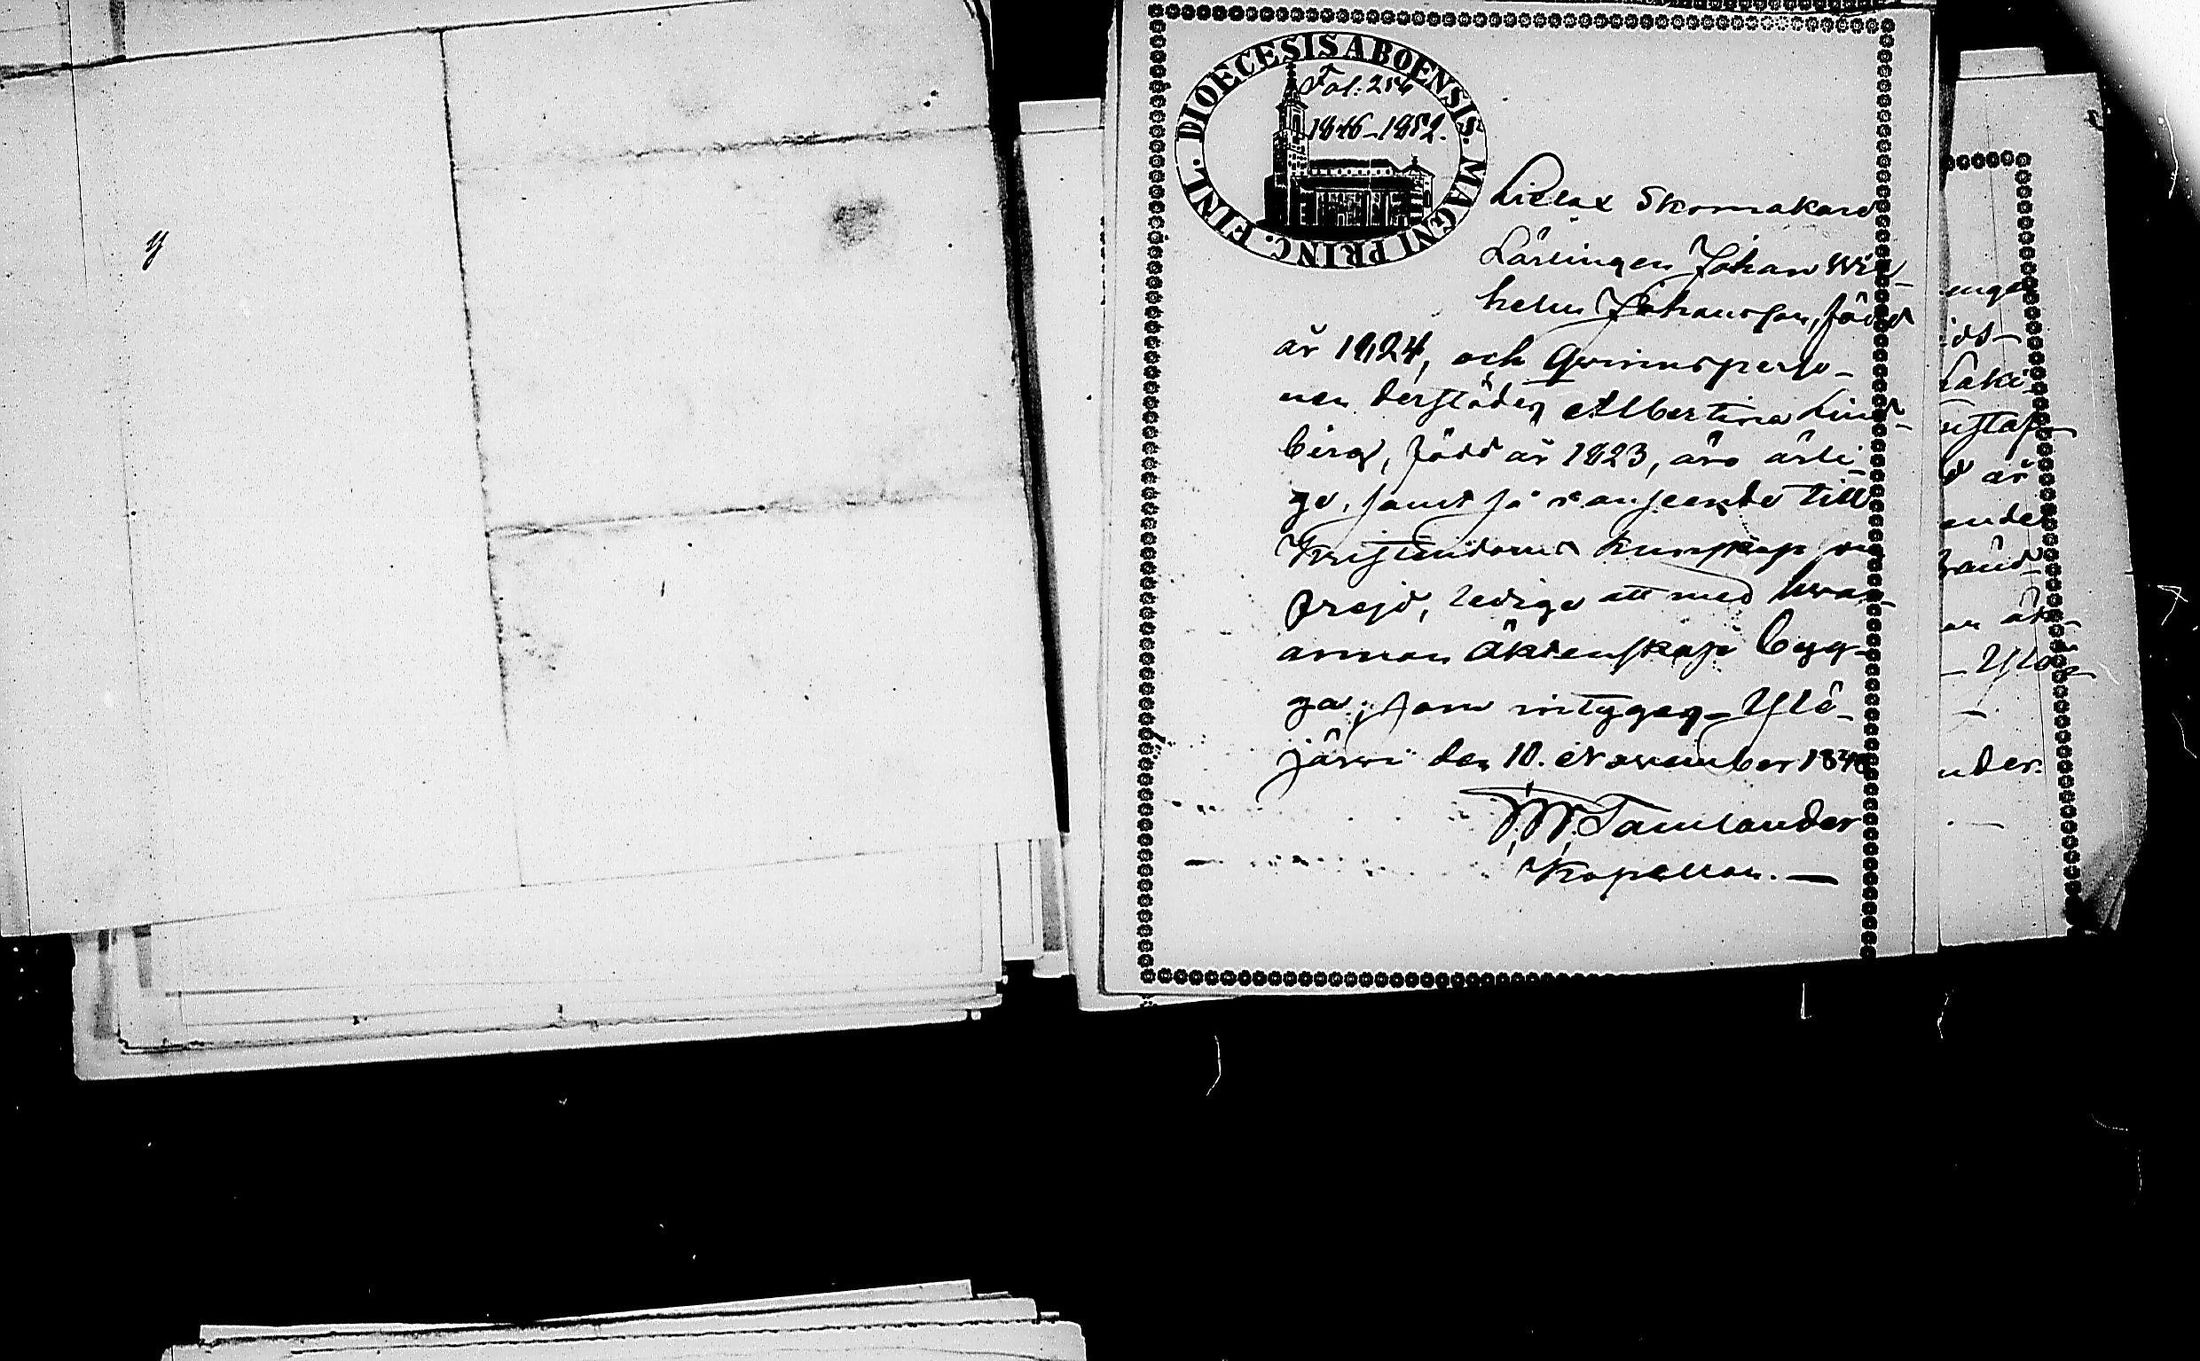 y
DIOECESIS ABOENSIS. MAGNI PRINC. FINL.
Fol: 256
1846-1852.
Lielax Skomakare
Lärlingen Johan Wil-
helm Johansson, född
år 1824, och Qvinnsperso-
nen derstädes Albertina Lind-
berg, född år 1823, äro ärli-
ge, samt så i anseende till
Kristendoms kunskap som
Frejd, ledige att med hvar-
annan Äktenskap byg-
ga; som intygas. Ylö-
järvi den 10. November 184
W. Tamlander
Kapellan. —
ende
år
Ylö-
nder.